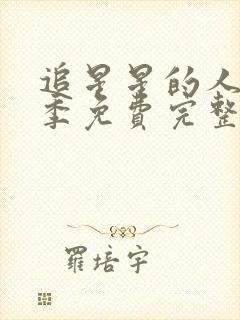 追星星的人
季免費完整
羅培宇